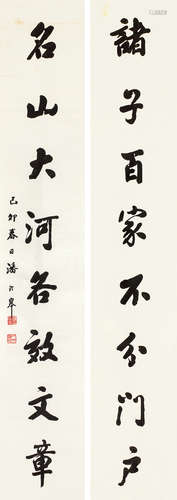 諸子百家不分門戶
名山大河各效文章
己卯春日潘公皋